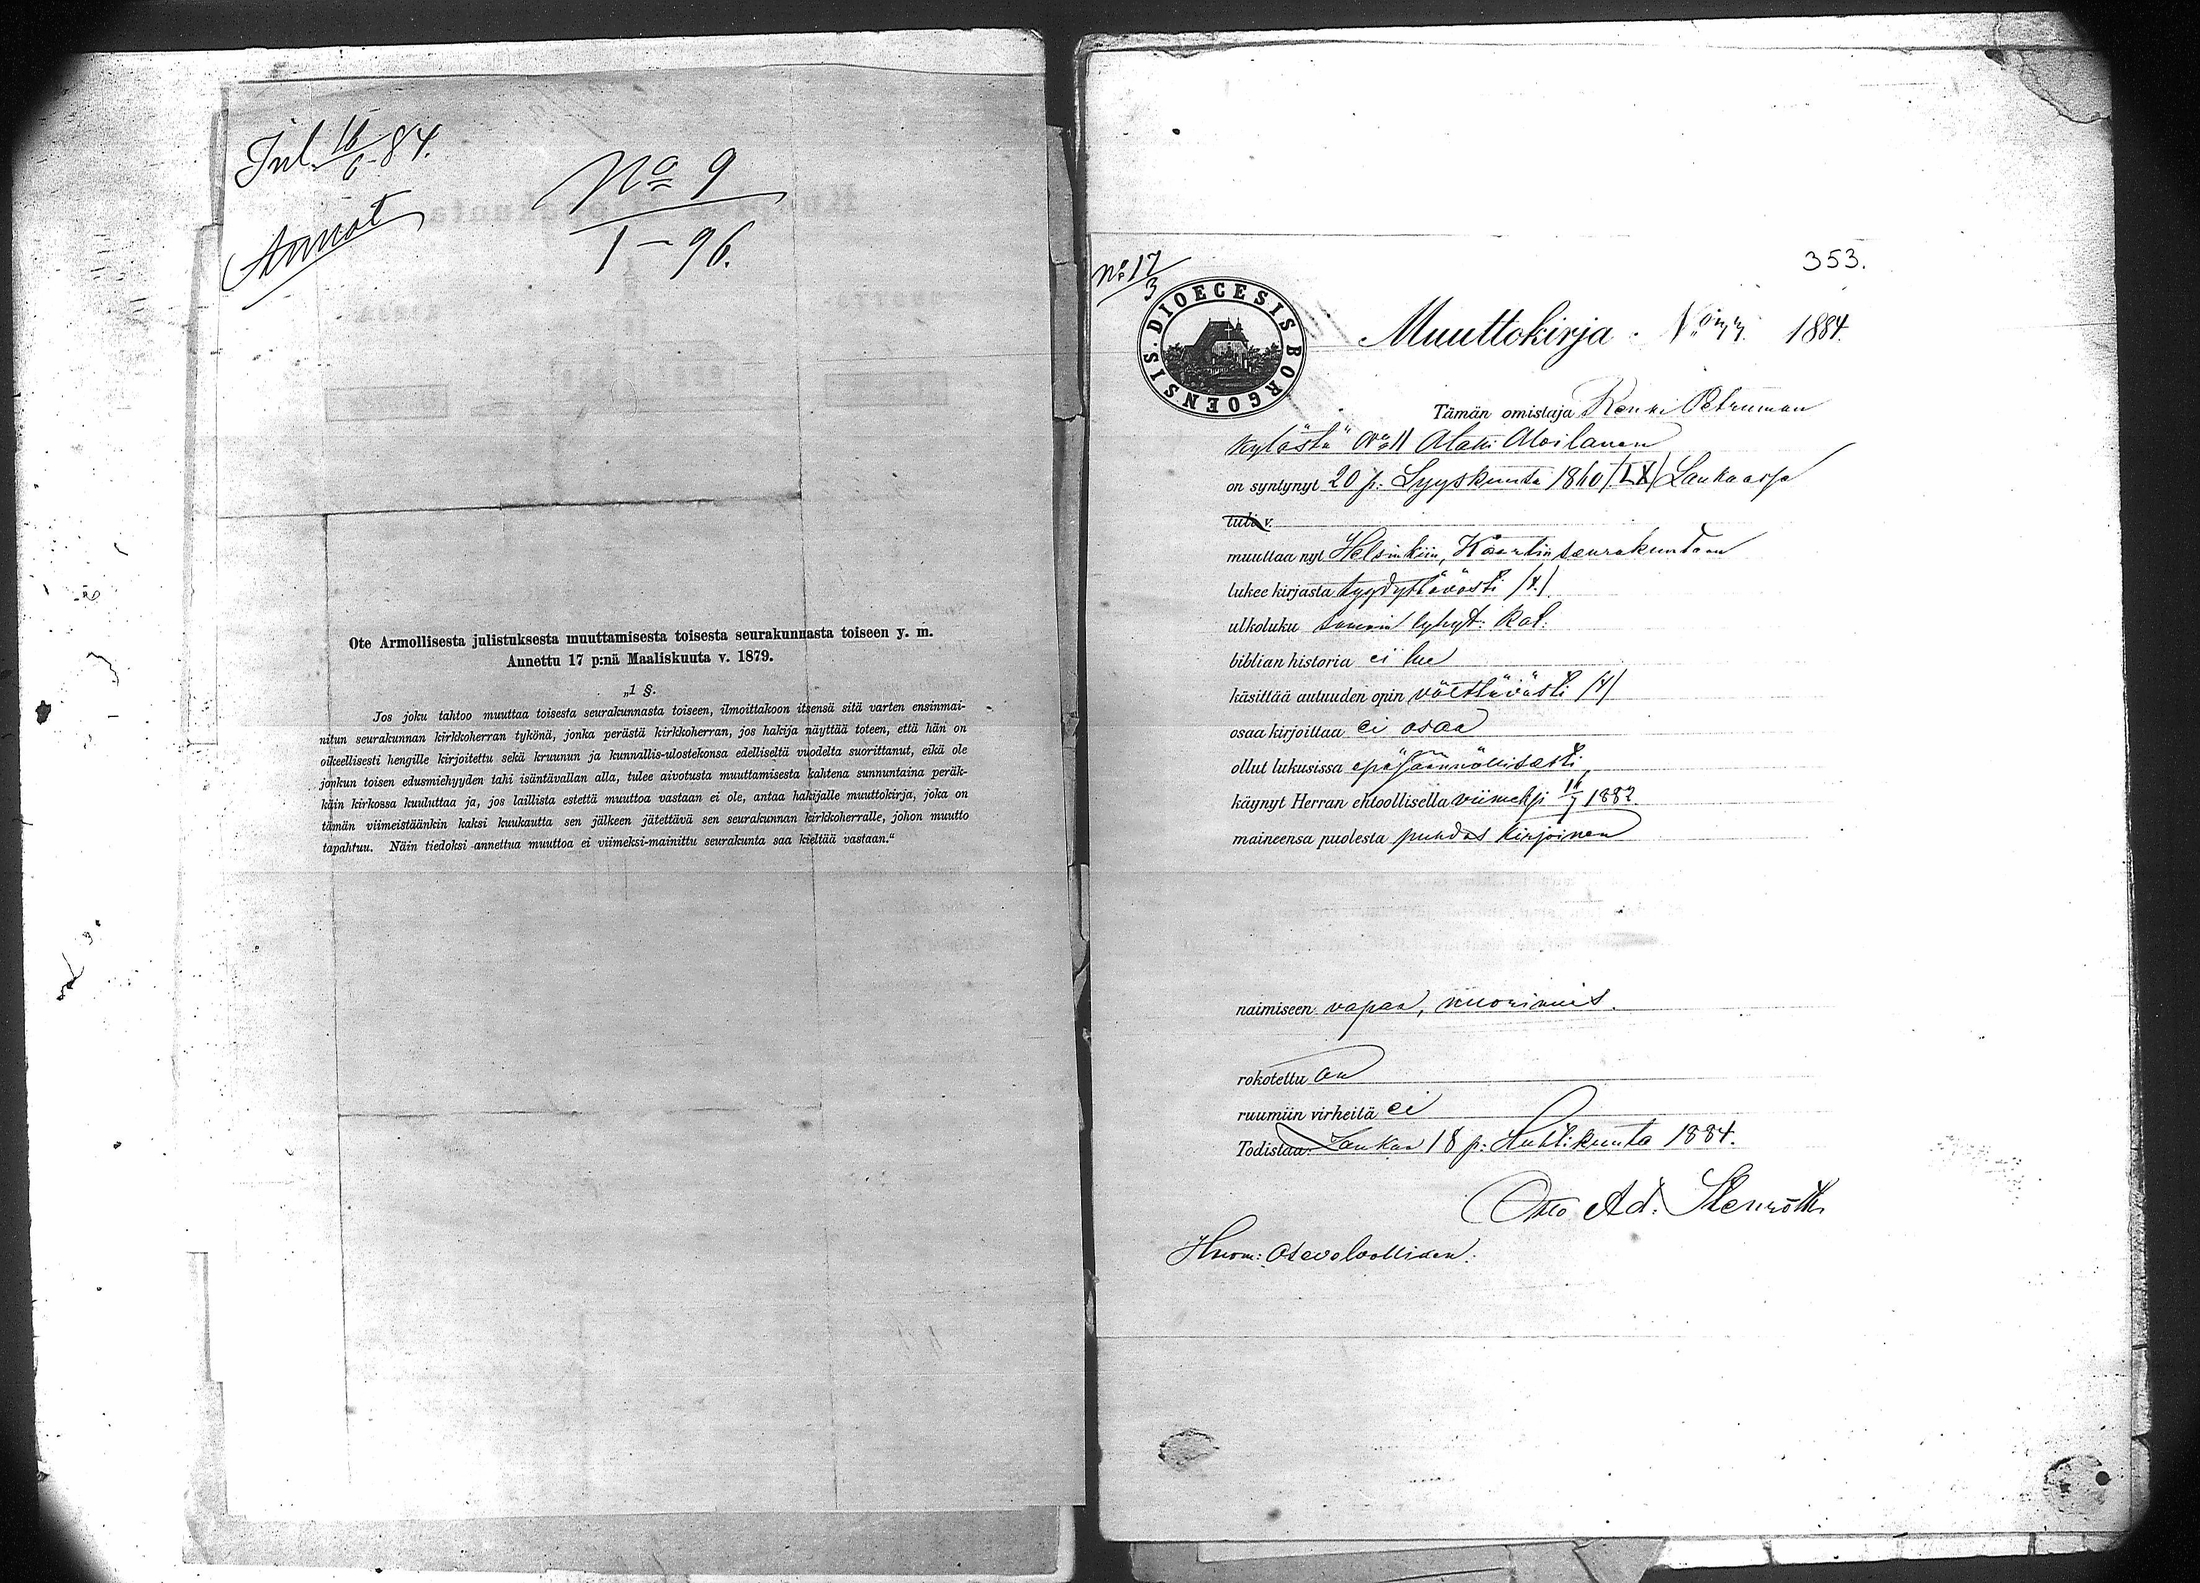 Inl. 16/6 84.
Annot
No 9
1–96.
Ote Armollisesta julistuksesta muuttamisesta toisesta seurakunnasta toiseen y. m.
Annettu 17 p:nä Maaliskuuta v. 1879.
„1 §.
Jos joku tahtoo muuttaa toisesta seurakunnasta toiseen, ilmoittakoon itsensä sitä varten ensinmai-
nitun seurakunnan kirkkoherran tykönä, jonka perästä kirkkoherran, jos hakija näyttää toteen, että hän on
oikeellisesti hengille kirjoitettu sekä kruunun ja kunnallis-ulostekonsa edelliseltä vuodelta suorittanut, eikä ole
jonkun toisen edusmiehyyden tahi isäntävallan alla, tulee aivotusta muuttamisesta kahtena sunnuntaina peräk-
käin kirkossa kuuluttaa ja, jos laillista estettä muuttoa vastaan ei ole, antaa hakijalle muuttokirja, joka on
tämän viimeistäänkin kaksi kuukautta sen jälkeen jätettävä sen seurakunnan kirkkoherralle, johon muutto
tapahtuu. Näin tiedoksi annettua muuttoa ei viimeksi-mainittu seurakunta saa kieltää vastaan.“
353.
No 17/3
DIOECESIS BORGOENSIS.
Muuttokirja 1884.
Tämän omistaja Renki
kylästä No 11 Matti Moilanen
on syntynyt 20 p. Syyskuuta 1860 (LX) Laukaassa
tuli v.
muuttaa nyt Helsinkiin, Kaartin seurakuntaan
lukee kirjasta tyydyttävästi
ulkoluku lyhyt. Kat.
biblian historia ei lue
käsittää autuuden opin välttävästi
osaa kirjoittaa ei osaa
ollut lukusissa epäsäännöllisesti
käynyt Herran ehtoollisella viimeksi 1882
maineensa puolesta puhdas kirjoinen
naimiseen vapaa, nuorimies.
rokotettu on
ruumiin virheitä ei
Todistaa: Laukaa 18 p. Huhtikuuta 1884.
Otto Ad. Stenroth
Huom: Asevelvollinen.